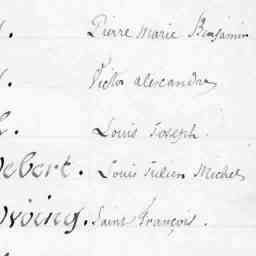 Pierre Marie Benjamin
Victor alexandre
Louis Joseph.
Louis Julien Michel
Saint François.